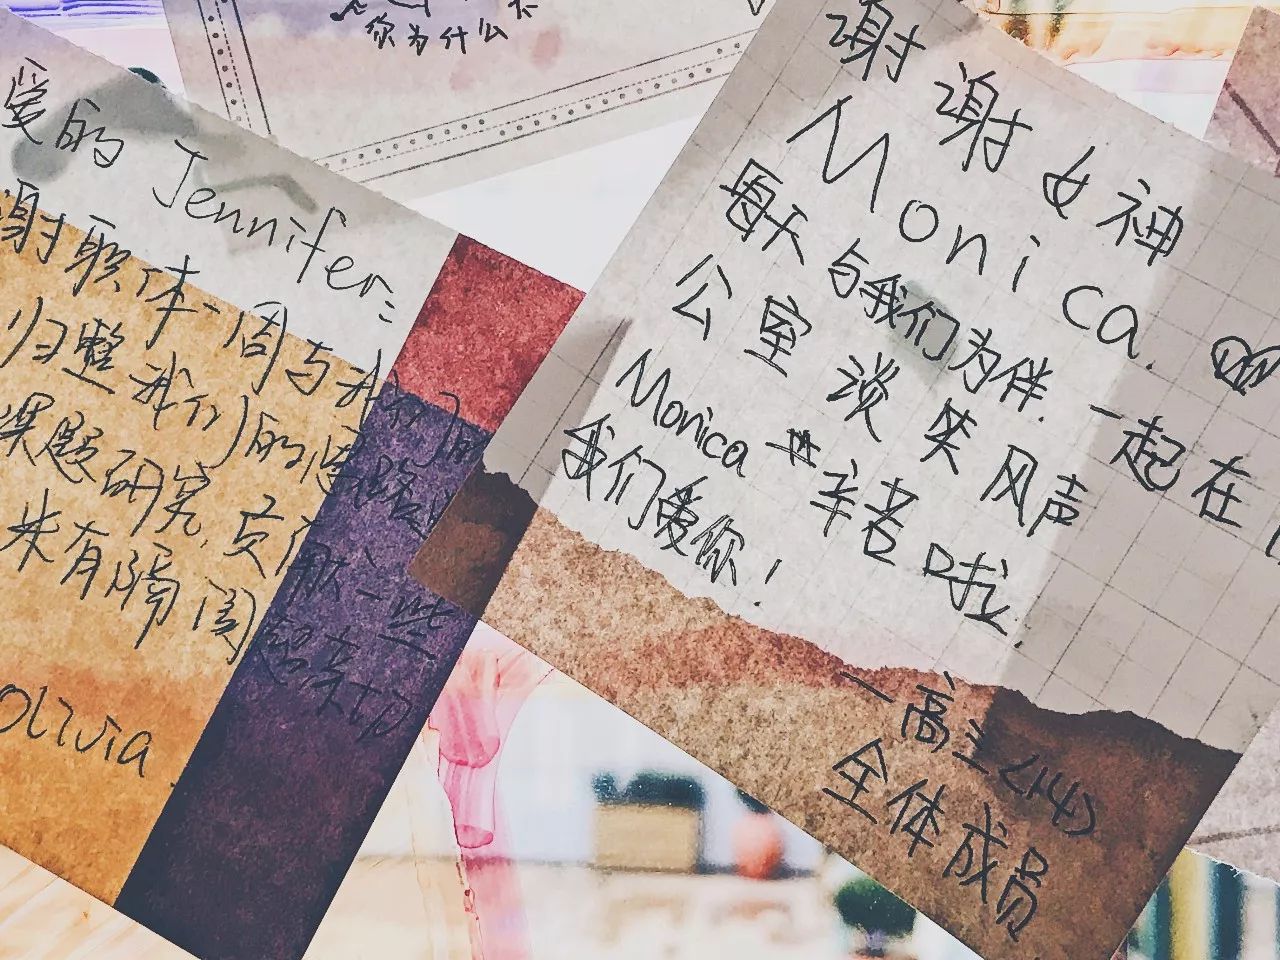 你为什么不
爱的 Jennifer:
谢职体一周与我们的
归整我们的思路
课题研究,贡献一些
未有隔阂
Olivia
谢谢女神
Monica
每天与我们为伴.一起在
公室淡笑风声
Monica 辛苦啦
我们爱你!
一高三(14)
全体成员